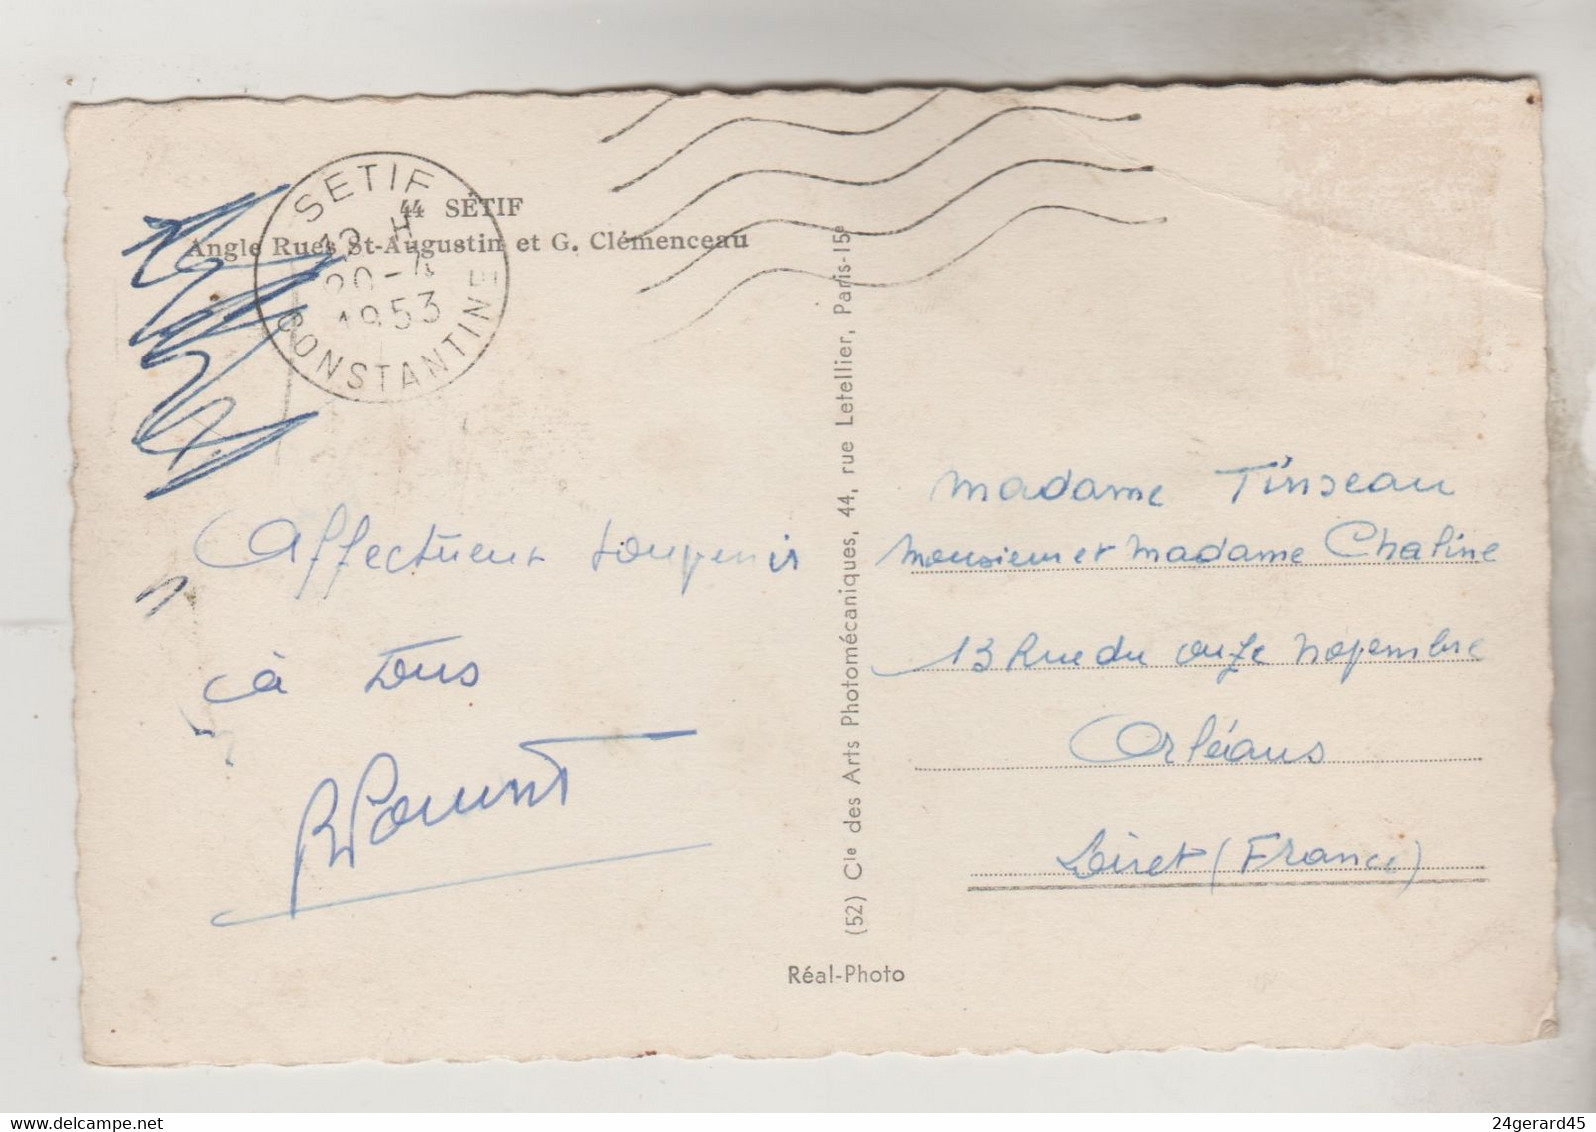 44 SÉTIF
Angle Rues St-Augustin et G. Clémenceau
SETIF
H
20-4
1953
CONSTANTINE
Affectueux souvenir
à tous
(52) Cie des Arts Photomécaniques, 44, rue Letellier, Paris-15e
Réal-Photo
Madame Tinseau
Monsieur et Madame Chaline
13 Rue du onze novembre
Orléans
Loiret (France)
24gerard45
delcampe.net